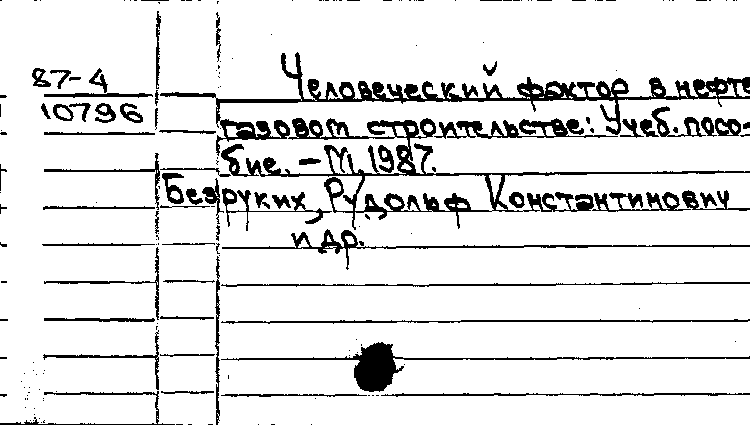 87-4
10796
Человеческий фактор в нефте
газовом строительстве: Учеб. посо-
бие. - М., 1987.
Безруких, Рудольф Константинович
и др.